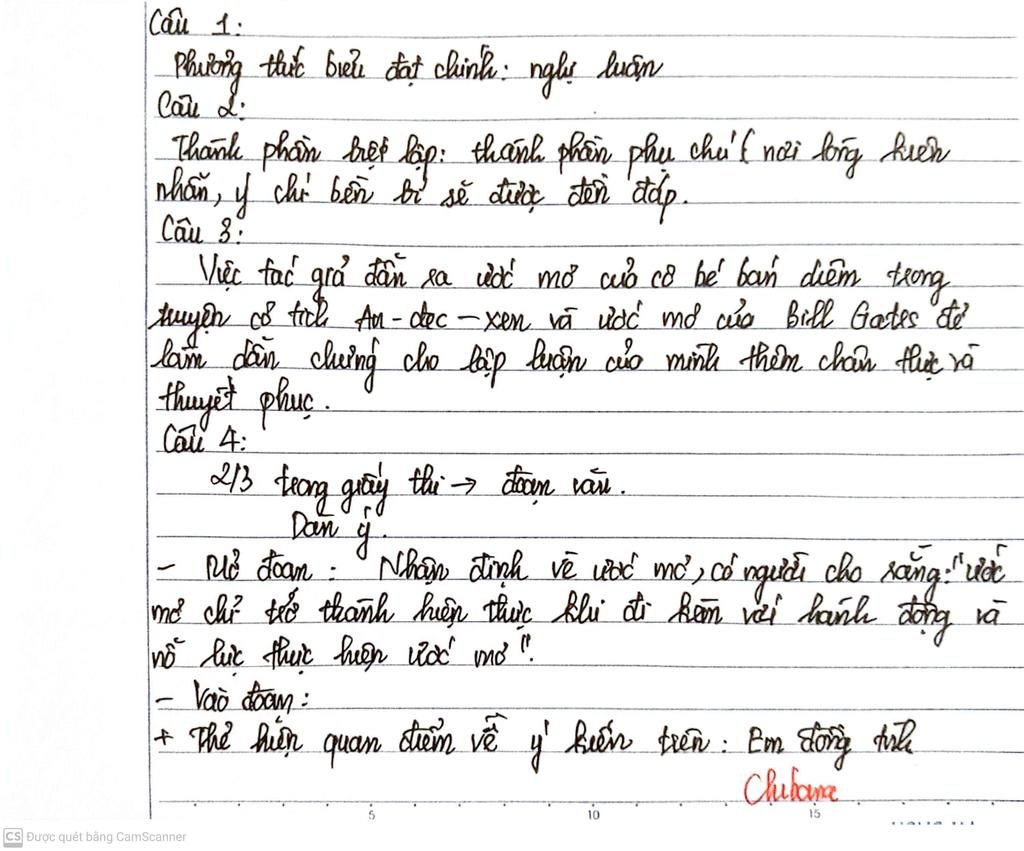 Câu 1:
Phương thức biểu đạt chính: nghị luận
Câu 2:
Thành phần biệt lập: thành phần phụ chú ( nơi lòng kiên
nhẫn, ý chí bền bỉ sẽ được đền đáp.
Câu 3:
Việc tác giả dẫn ra ước mơ của cô bé bán diêm trong
truyện cổ tích An-đec-xen và ước mơ của Bill Gates để
làm dẫn chứng cho lập luận của mình thêm chân thực và
thuyết phục.
Câu 4:
2/3 trong giấy thi → đoạn văn.
Dàn ý.
- Mở đoạn: Nhận định về ước mơ, có người cho rằng: "ước
mơ chỉ trở thành hiện thực khi đi kèm với hành động và
nỗ lực thực hiện ước mơ".
- Vào đoạn:
+ Thể hiện quan điểm về ý kiến trên: Em đồng tình
Chibana
5 10 15
CS Được quét bằng CamScanner